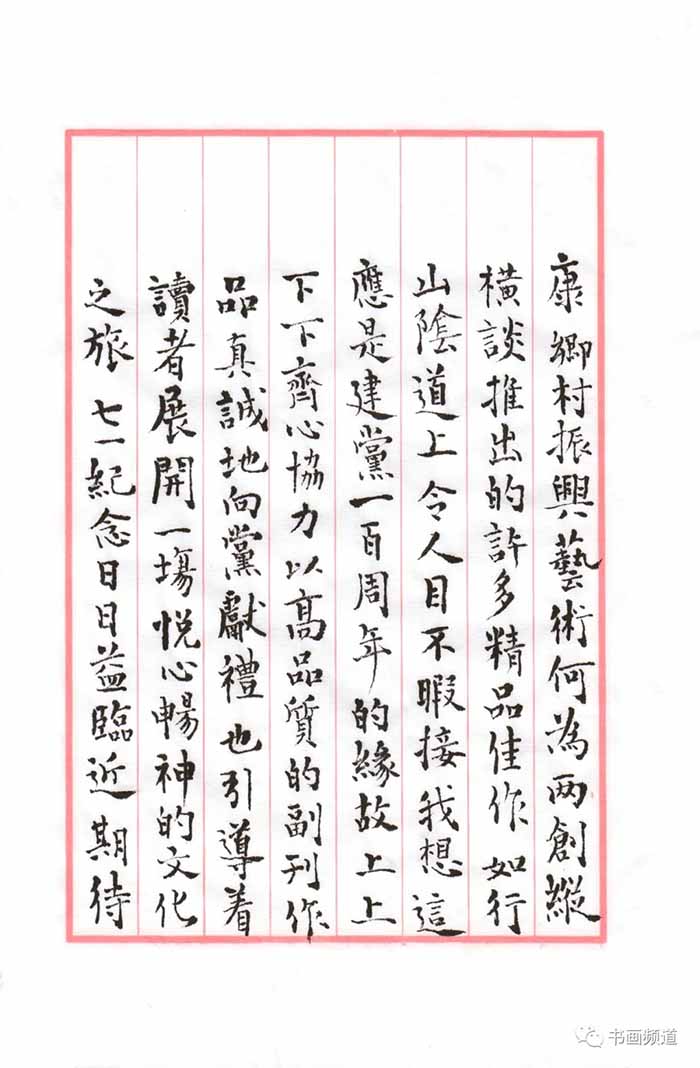 康鄉村振興藝術何為两創縱
横談推出的許多精品佳作如行
山陰道上令人目不暇接我想這
應是建黨一百周年的緣故上上
下下齊心協力以高品質的副刊作
品真誠地向黨獻禮也引導着
讀者展開一塲悅心暢神的文化
之旅七一紀念日日益臨近期待
书画频道